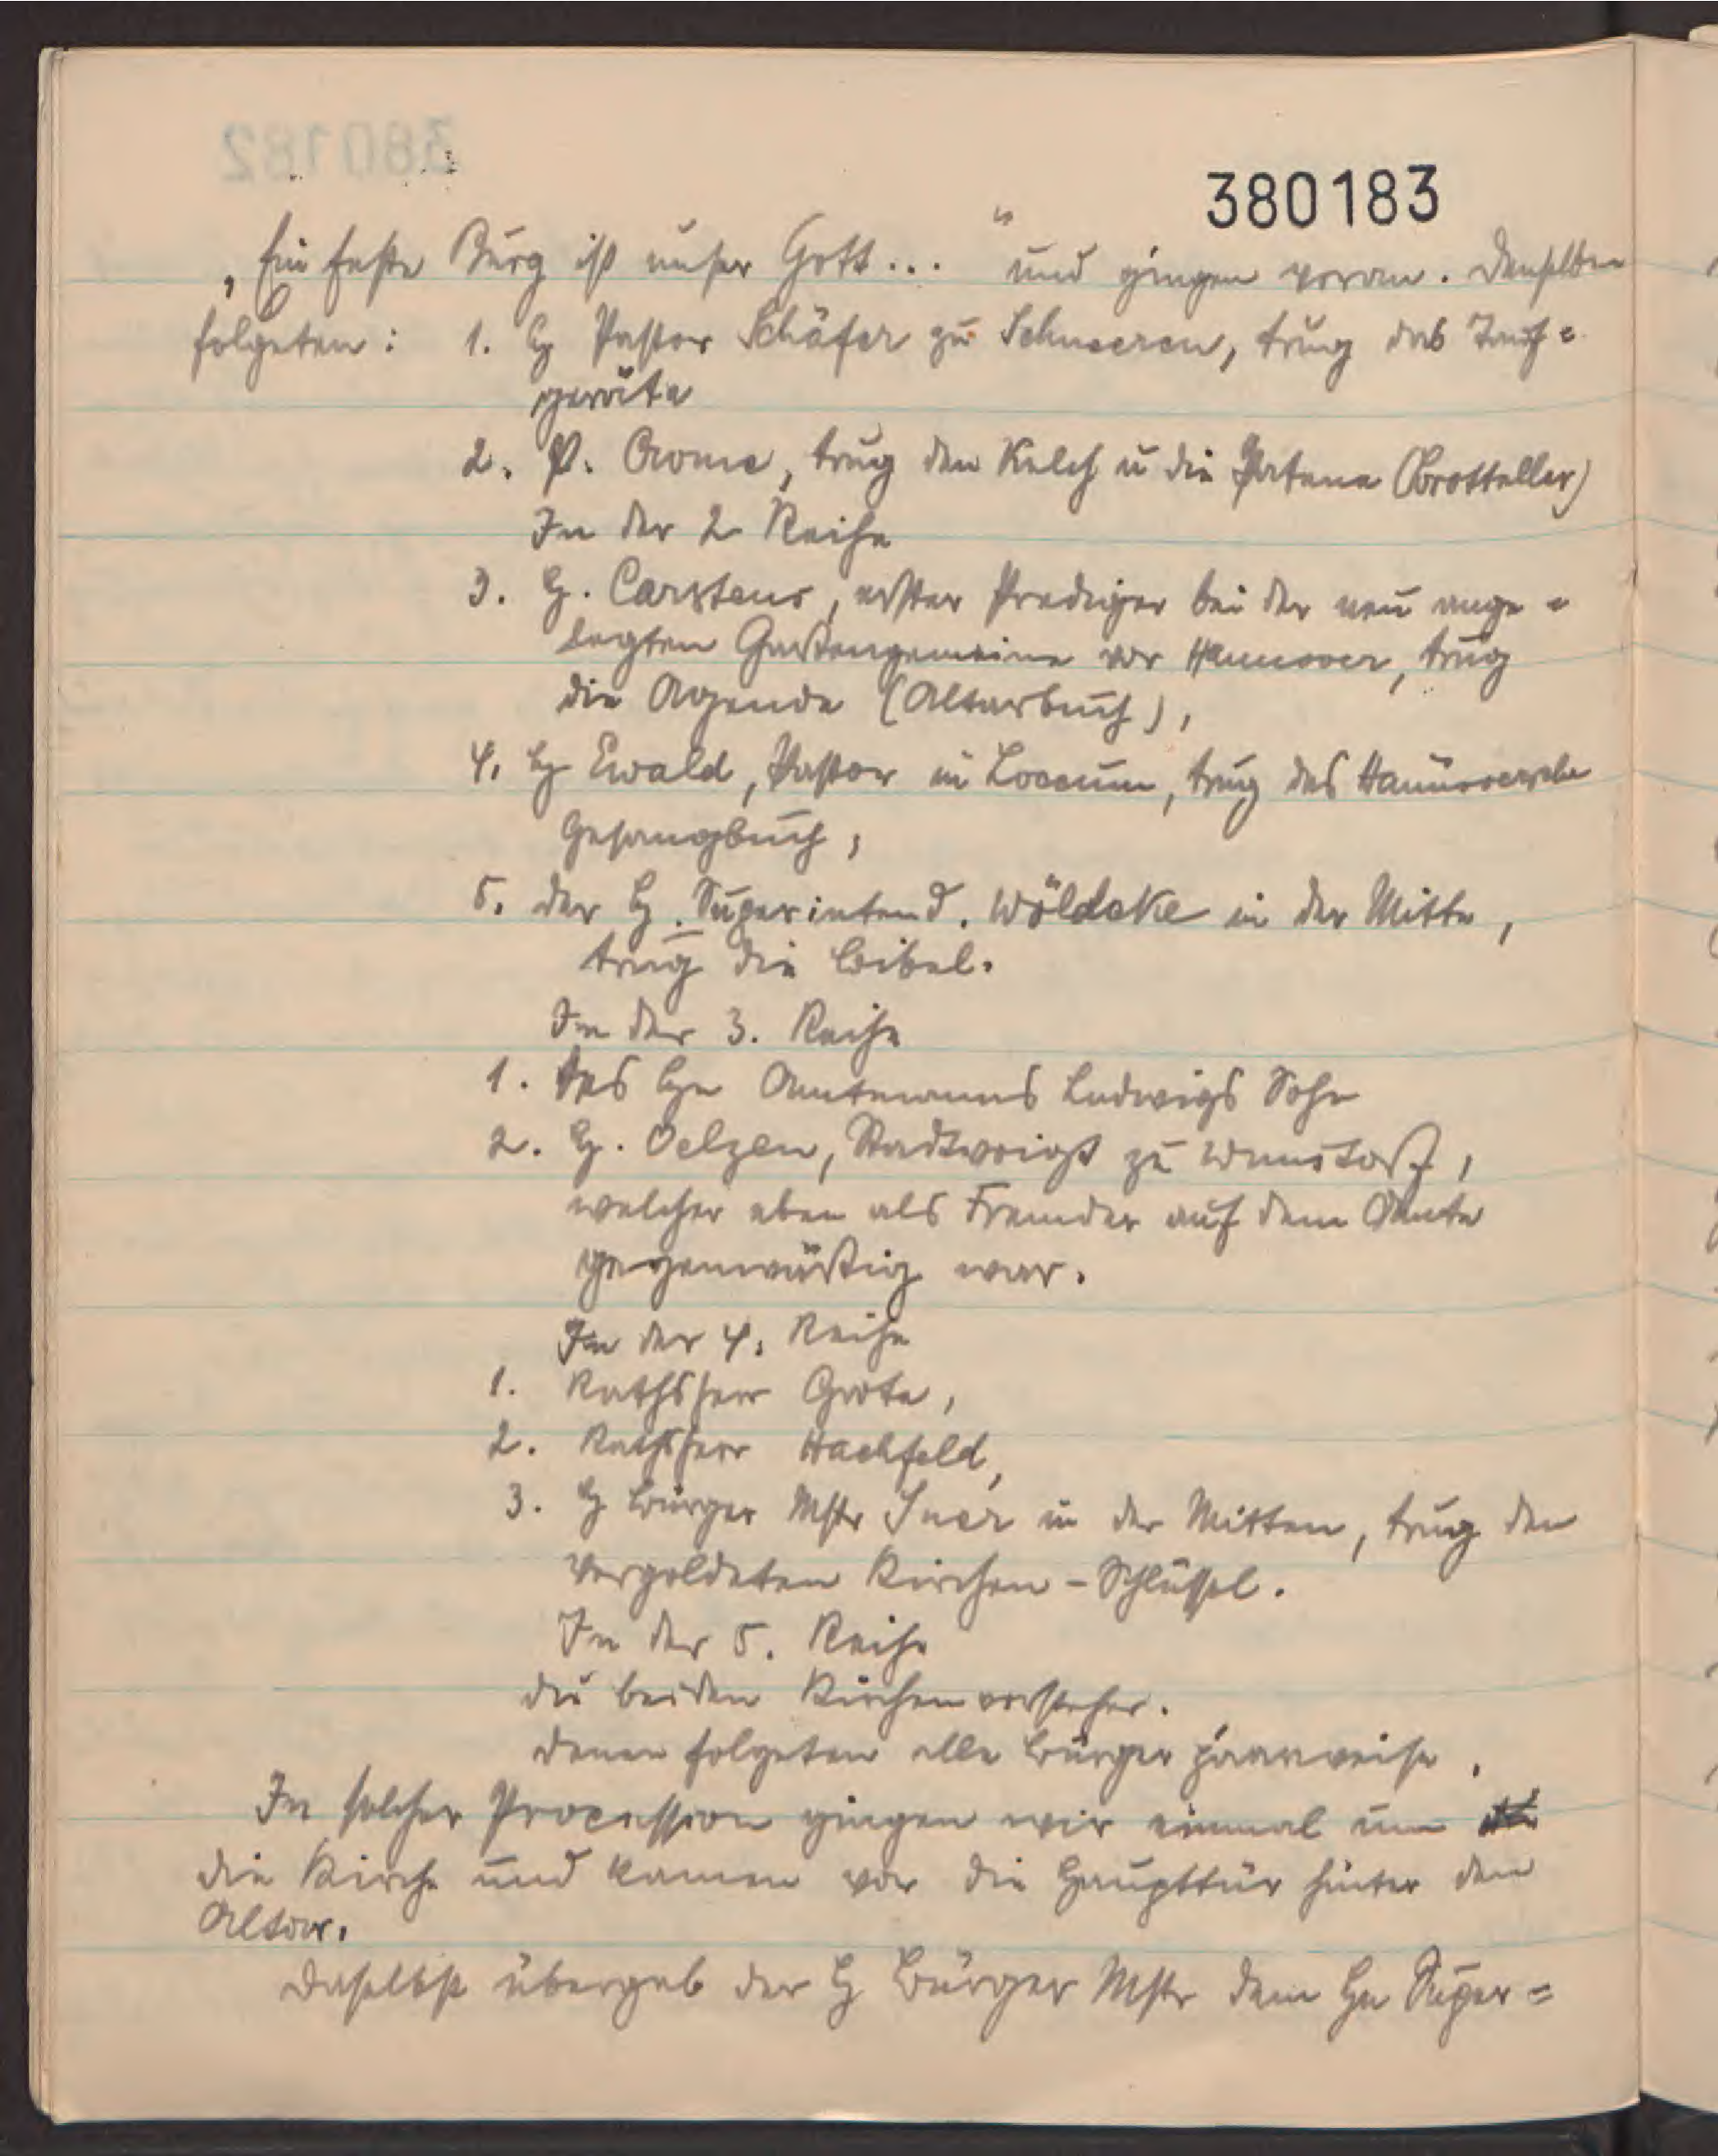 380183
„Ein feste Burg ist unser Gott..." und gingen voran. Denselben
folgeten: 1. H Pastor Schäfer zu Schneeren, trug das Tauf=
geräte
2. P. Crome, trug den Kelch u die Patene (Brotteller)
In der 2 Reihe
3. H. Carstens, erster Prediger bei der neu ange=
legten Gartengemeine vor Hannover, trug
die Agende (Altarbuch),
4. H Ewald, Pastor in Loccum, trug das Hannoversche
Gesangbuch,
5. der H. Superintend. Wöldeke in der Mitte,
trug die Bibel.
In der 3. Reihe
1. Des Hn Amtmanns Ludwigs Sohn
2. H. Oelzen, Stadtvoigt zu Wunstorf,
welcher eben als Fremder auf dem Amte
gegenwärtig war.
In der 4. Reihe
1. Rathsherr Grote,
2. Rathsherr Hachfeld,
3. H Bürger Mstr in der Mitten, trug den
vergoldeten Kirchen-Schlüssel.
In der 5. Reihe
die beiden Kirchenvorsteher.
Denen folgeten alle Bürger paarweise.
In solcher Procession gingen wir einmal um
die Kirche und kamen vor die Haupttür hinter dem
Altar.
Daselbst übergab der H Bürger Mstr dem Hn Super=